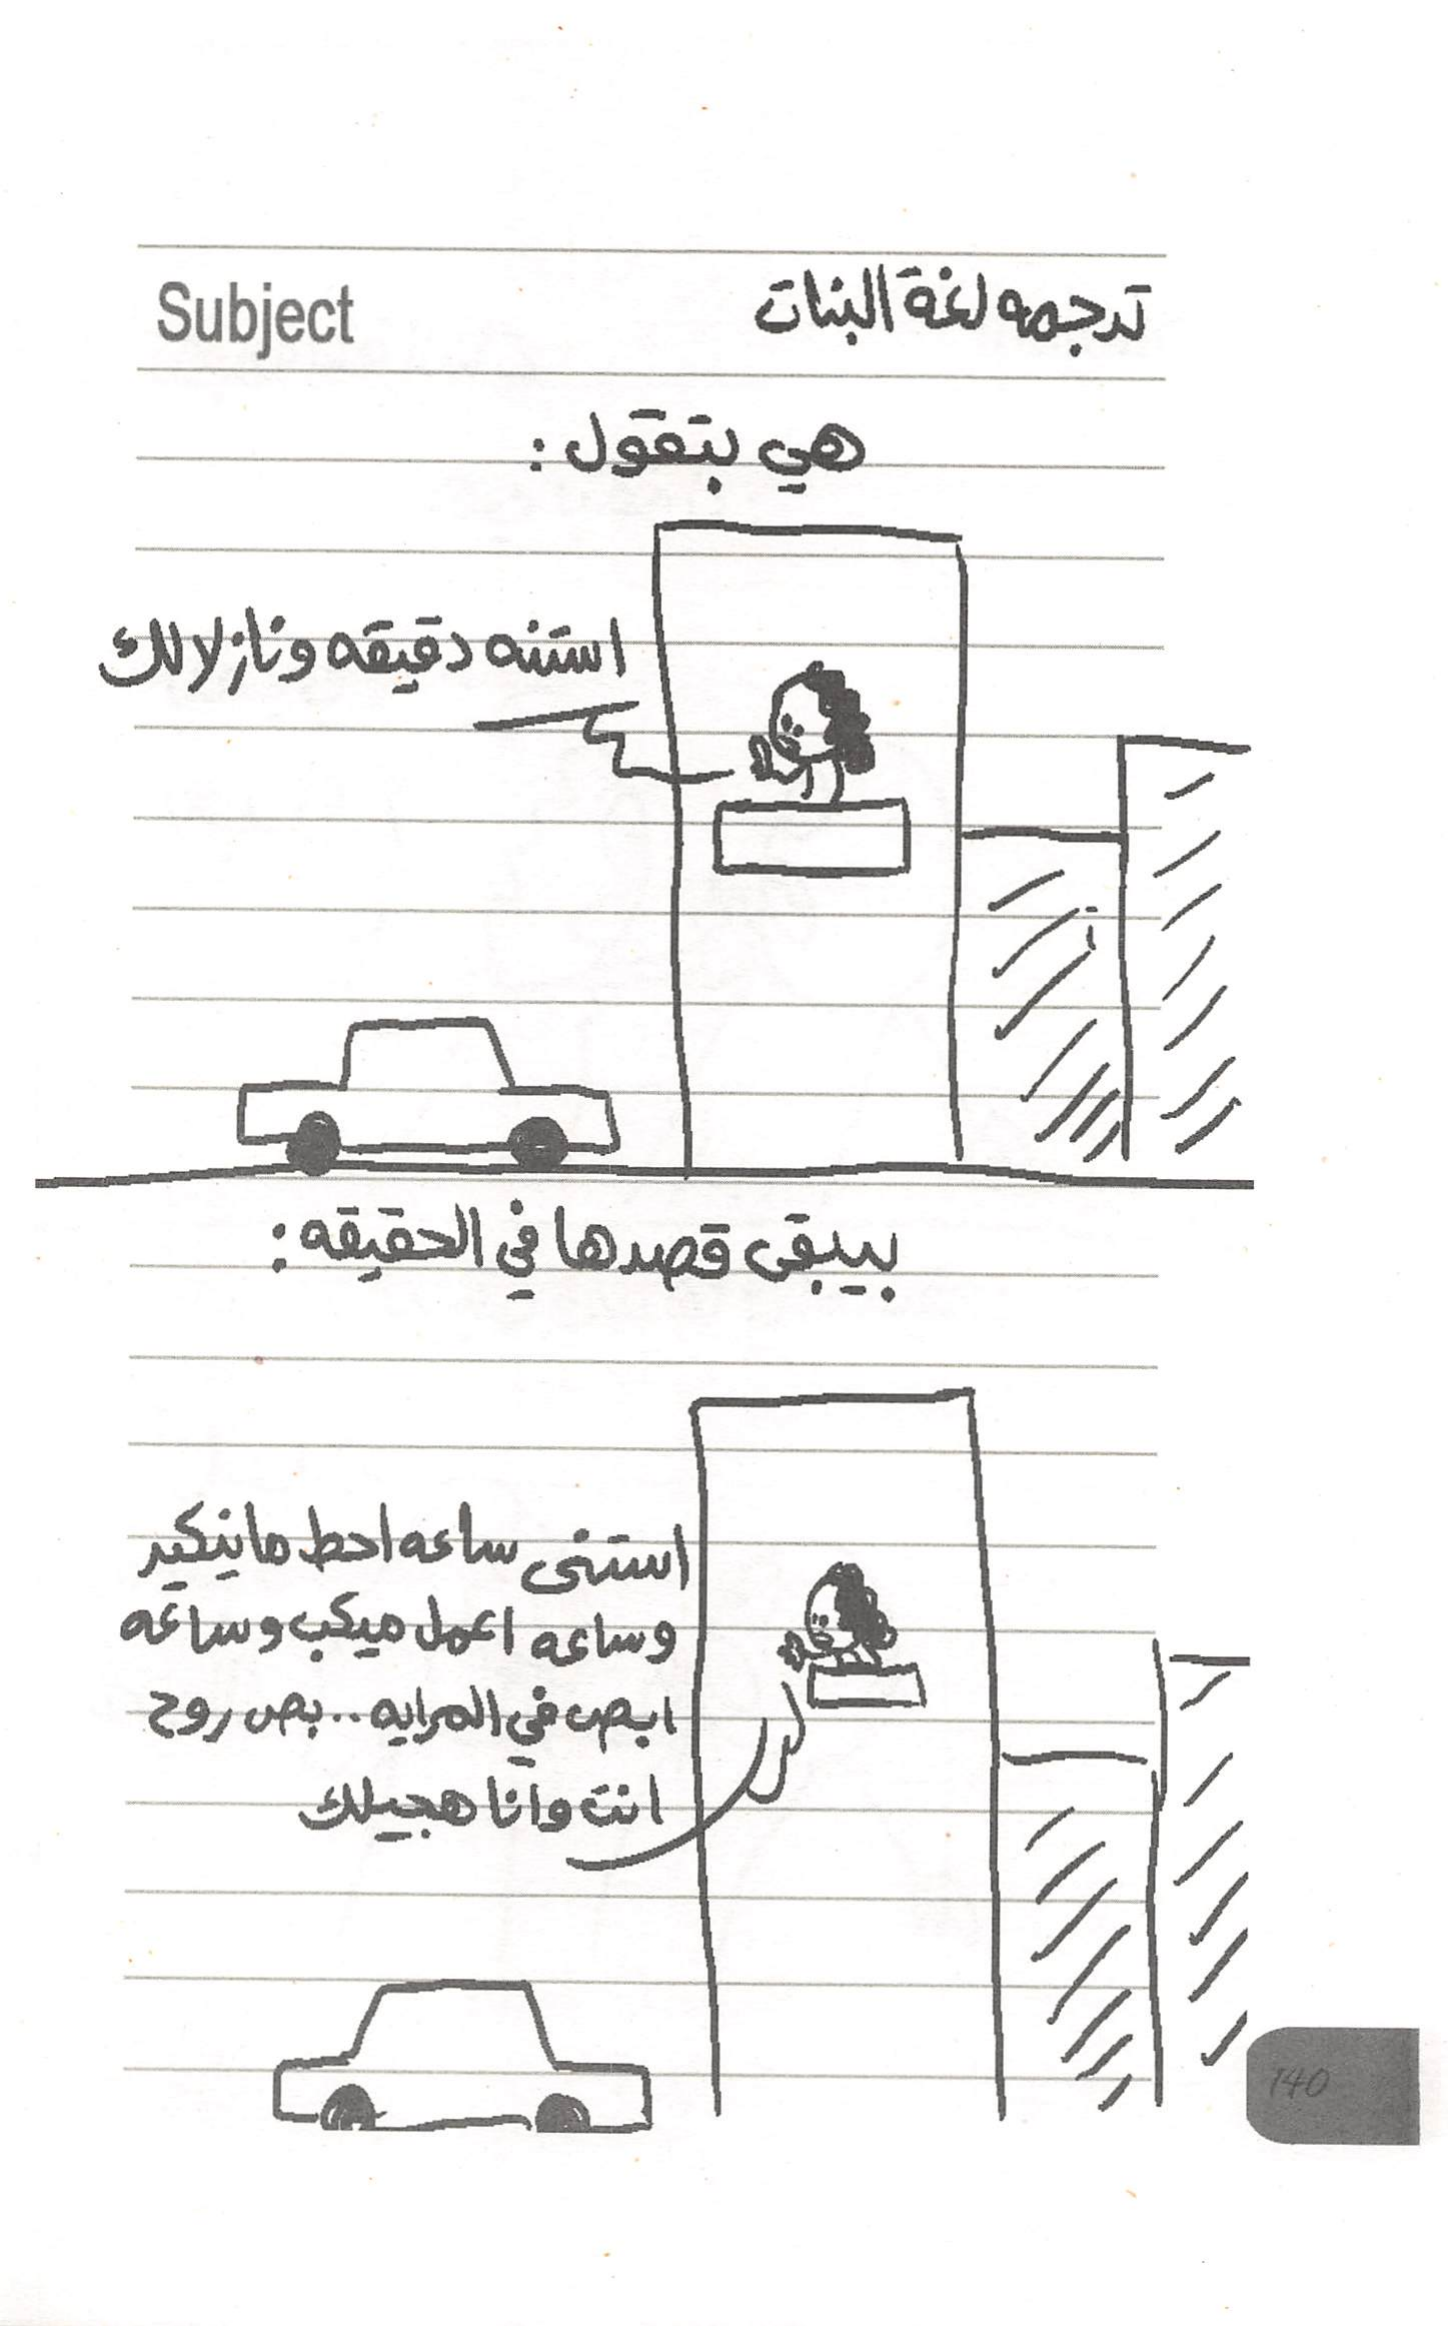 Subject
ترجمه لغة البنات
هي بتقول :
استنه دقيقه ونازلالك
بيبقى قصدها في الحقيقه :
استنى ساعه احط مانيكير
وساعه اعمل ميكب وساعه
ابص في المرايه .. بص روح
انت وانا هجيلك
140